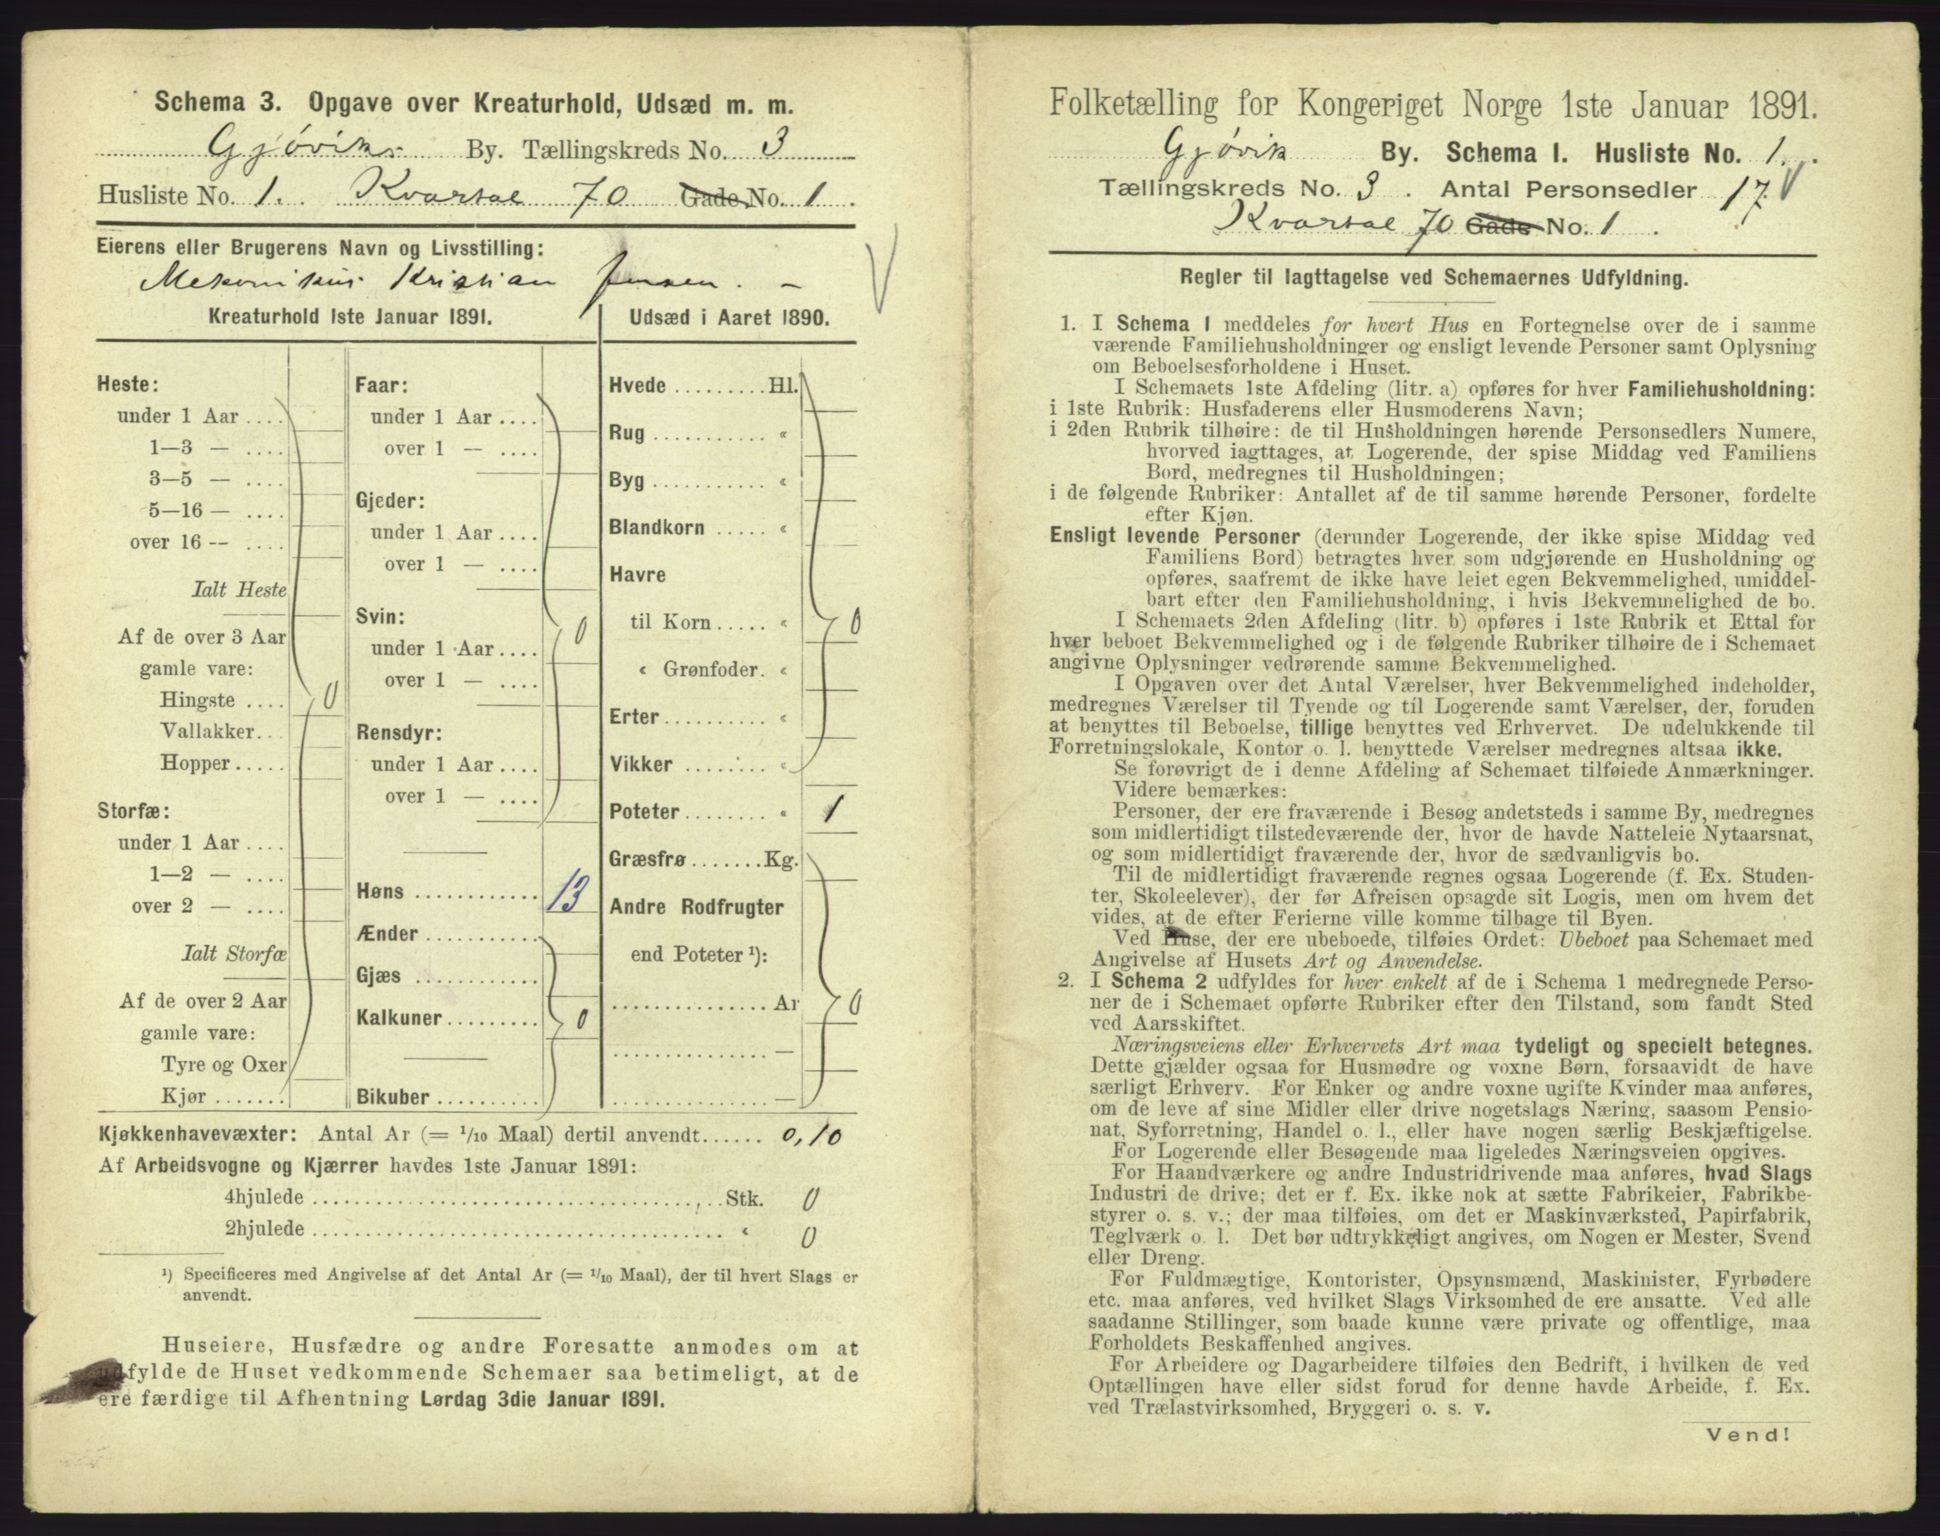 Schema 3. Opgave over Kreaturhold, Udsæd m. m.
Gjøviks By. Tællingskreds No. 3
Husliste No. 1. Kvartal 70 Gade No. 1.
Eierens eller Brugerens Navn og Livsstilling:
Mekanikus Kristian Jensen. –
Kreaturhold 1ste Januar 1891.
Heste:
under 1 Aar ....
1—3 — ....
3—5 — ....
5—16 — ....
over 16 -- ....
Ialt Heste
Af de over 3 Aar
gamle vare:
Hingste .... 0
Vallakker...
Hopper.....
Storfæ:
under 1 Aar ....
1—2 — ....
over 2 — ....
Ialt Storfæ
Af de over 2 Aar
gamle vare:
Tyre og Oxer
Kjør .......
Faar:
under 1 Aar ....
over 1 — ....
Gjeder:
under 1 Aar ....
over 1 — ....
Svin: 0
under 1 Aar ....
over 1 — ....
Rensdyr:
under 1 Aar ....
over 1 — ....
Høns ............ 13
Ænder ...........
Gjæs ............
Kalkuner ......... 0
Bikuber ..........
Udsæd i Aaret 1890.
Hvede ......... Hl.
Rug ........... «
Byg ........... «
Blandkorn ..... «
Havre
til Korn ..... « 0
« Grønfoder. «
Erter ......... «
Vikker ....... «
Poteter ........ « 1
Græsfrø ....... Kg.
Andre Rodfrugter
end Poteter ¹):
............... Ar 0
............... —
............... —
Kjøkkenhavevæxter: Antal Ar (= 1/10 Maal) dertil anvendt...... 0,10
Af Arbeidsvogne og Kjærrer havdes 1ste Januar 1891:
4hjulede ........ Stk. 0
2hjulede ........ « 0
¹) Specificeres med Angivelse af det Antal Ar (= 1/10 Maal), der til hvert Slags er
anvendt.
Huseiere, Husfædre og andre Foresatte anmodes om at
udfylde de Huset vedkommende Schemaer saa betimeligt, at de
ere færdige til Afhentning Lørdag 3die Januar 1891.
Folketælling for Kongeriget Norge 1ste Januar 1891.
Gjøvik By. Schema I. Husliste No. 1.
Tællingskreds No. 3. Antal Personsedler 17
Kvartal 70 Gade No. 1.
Regler til Iagttagelse ved Schemaernes Udfyldning.
1. I Schema I meddeles for hvert Hus en Fortegnelse over de i samme
værende Familiehusholdninger og ensligt levende Personer samt Oplysning
om Beboelsesforholdene i Huset.
I Schemaets 1ste Afdeling (litr. a) opføres for hver Familiehusholdning:
i 1ste Rubrik: Husfaderens eller Husmoderens Navn;
i 2den Rubrik tilhøire: de til Husholdningen hørende Personsedlers Numere,
hvorved iagttages, at Logerende, der spise Middag ved Familiens
Bord, medregnes til Husholdningen;
i de følgende Rubriker: Antallet af de til samme hørende Personer, fordelte
efter Kjøn.
Ensligt levende Personer (derunder Logerende, der ikke spise Middag ved
Familiens Bord) betragtes hver som udgjørende en Husholdning og
opføres, saafremt de ikke have leiet egen Bekvemmelighed, umiddel-
bart efter den Familiehusholdning, i hvis Bekvemmelighed de bo.
I Schemaets 2den Afdeling (litr. b) opføres i 1ste Rubrik et Ettal for
hver beboet Bekvemmelighed og i de følgende Rubriker tilhøire de i Schemaet
angivne Oplysninger vedrørende samme Bekvemmelighed.
I Opgaven over det Antal Værelser, hver Bekvemmelighed indeholder,
medregnes Værelser til Tyende og til Logerende samt Værelser, der, foruden
at benyttes til Beboelse, tillige benyttes ved Erhvervet. De udelukkende til
Forretningslokale, Kontor o. l. benyttede Værelser medregnes altsaa ikke.
Se forøvrigt de i denne Afdeling af Schemaet tilføiede Anmærkninger.
Videre bemærkes:
Personer, der ere fraværende i Besøg andetsteds i samme By, medregnes
som midlertidigt tilstedeværende der, hvor de havde Natteleie Nytaarsnat,
og som midlertidigt fraværende der, hvor de sædvanligvis bo.
Til de midlertidigt fraværende regnes ogsaa Logerende (f. Ex. Studen-
ter, Skoleelever), der før Afreisen opsagde sit Logis, men om hvem det
vides, at de efter Ferierne ville komme tilbage til Byen.
Ved Huse, der ere ubeboede, tilføies Ordet: Ubeboet paa Schemaet med
Angivelse af Husets Art og Anvendelse.
2. I Schema 2 udfyldes for hver enkelt af de i Schema 1 medregnede Perso-
ner de i Schemaet opførte Rubriker efter den Tilstand, som fandt Sted
ved Aarsskiftet.
Næringsveiens eller Erhvervets Art maa tydeligt og specielt betegnes.
Dette gjælder ogsaa for Husmødre og voxne Børn, forsaavidt de have
særligt Erhverv. For Enker og andre voxne ugifte Kvinder maa anføres,
om de leve af sine Midler eller drive nogetslags Næring, saasom Pensio-
nat, Syforretning, Handel o. l., eller have nogen særlig Beskjæftigelse.
For Logerende eller Besøgende maa ligeledes Næringsveien opgives.
For Haandværkere og andre Industridrivende maa anføres, hvad Slags
Industri de drive; det er f. Ex. ikke nok at sætte Fabrikeier, Fabrikbe-
styrer o. s. v.; der maa tilføies, om det er Maskinværksted, Papirfabrik,
Teglværk o. l. Det bør udtrykkeligt angives, om Nogen er Mester, Svend
eller Dreng.
For Fuldmægtige, Kontorister, Opsynsmænd, Maskinister, Fyrbødere
etc. maa anføres, ved hvilket Slags Virksomhed de ere ansatte. Ved alle
saadanne Stillinger, som baade kunne være private og offentlige, maa
Forholdets Beskaffenhed angives.
For Arbeidere og Dagarbeidere tilføies den Bedrift, i hvilken de ved
Optællingen have eller sidst forud for denne havde Arbeide, f. Ex.
ved Trælastvirksomhed, Bryggeri o. s. v.
Vend!